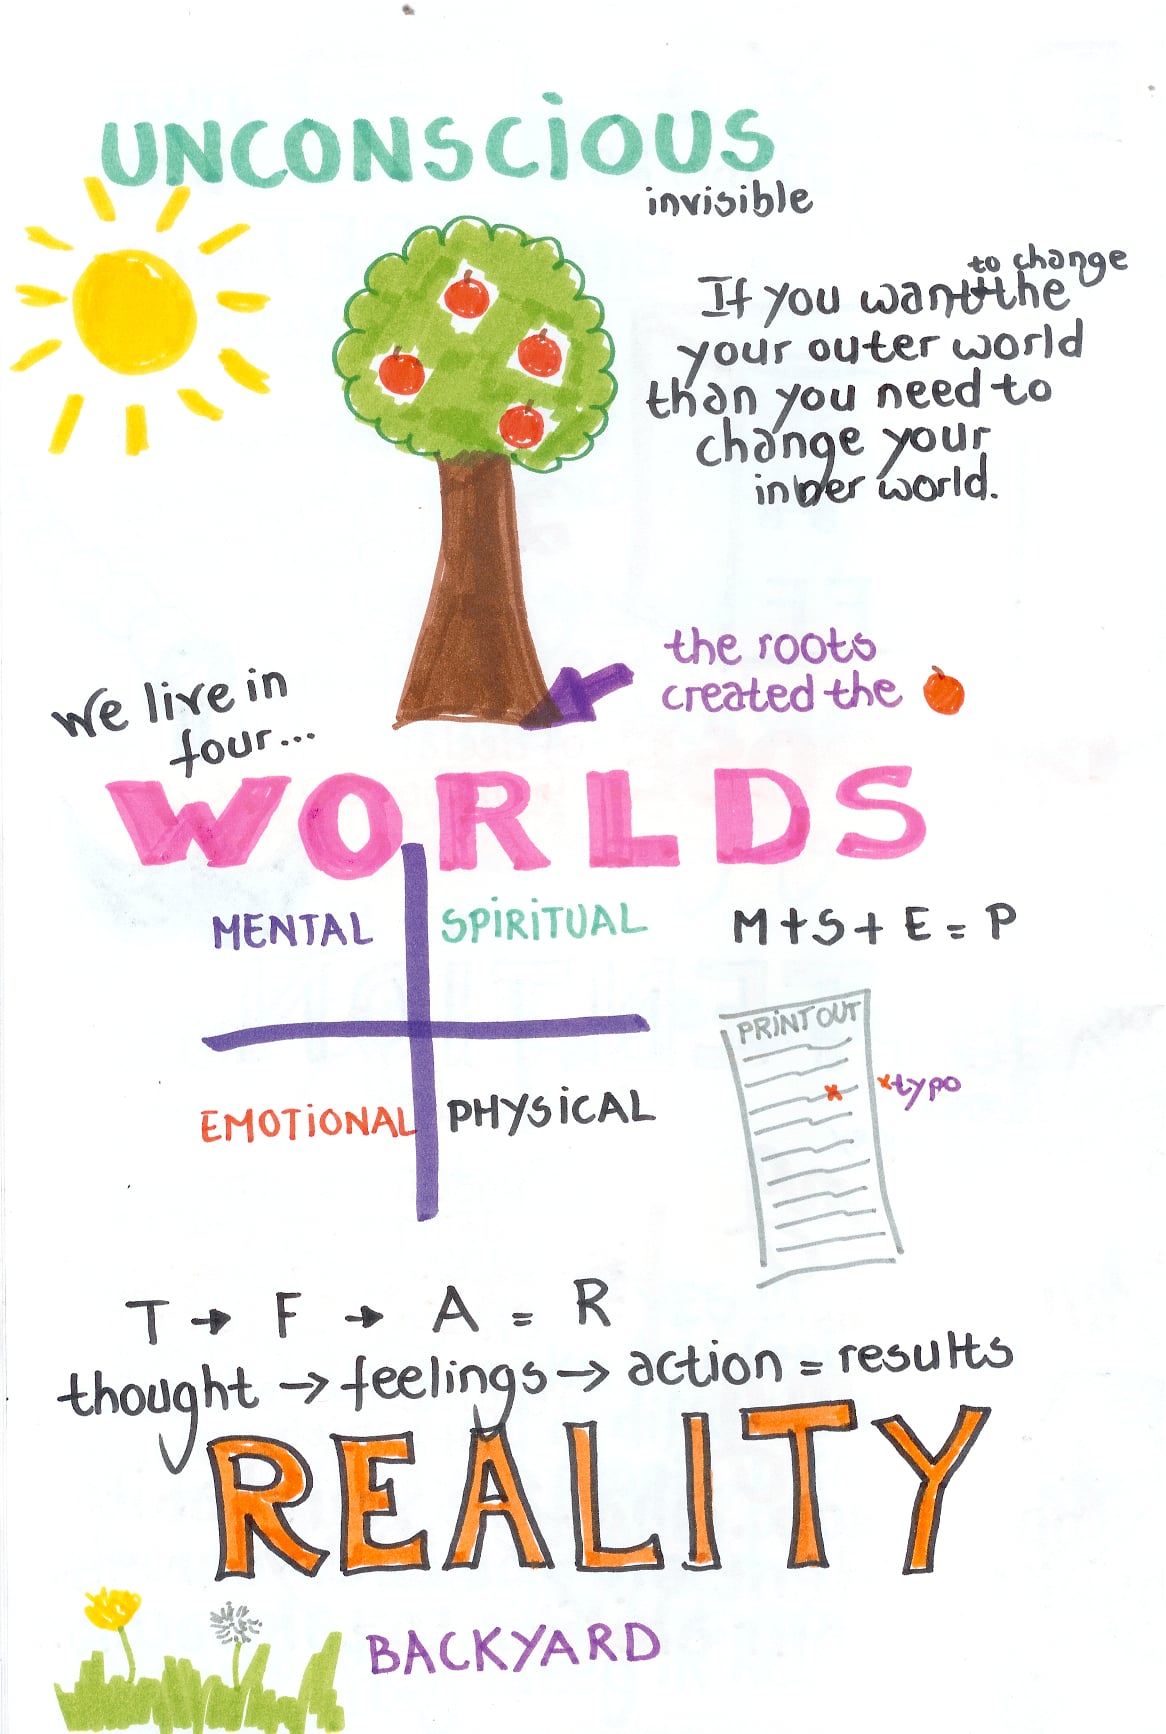 UNCONSCiOUS
invisible
to change
If you want the
your outer world
than you need to
change your
inner world.
the roots
created the
We live in
four...
WORLDS
MENTAL
SPiRiTUAL
M+S+ E = P
EMOTiONAL
PHYSiCAL
PRiNT OUT
x typo
T → F → A = R
thought → feelings → action = results
REALITY
BACKYARD